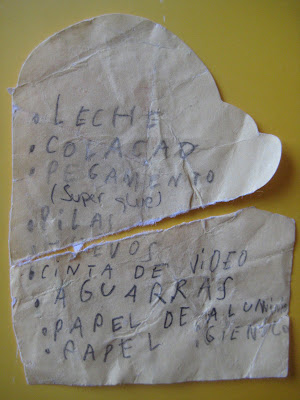 • LECHE
• COLACAO
• PEGAMENTO
(Super glue)
• PILAS
• HUEVOS
• CINTA DE VIDEO
• AGUARRAS
• PAPEL DE ALUMINIO
• PAPEL HIGIENICO